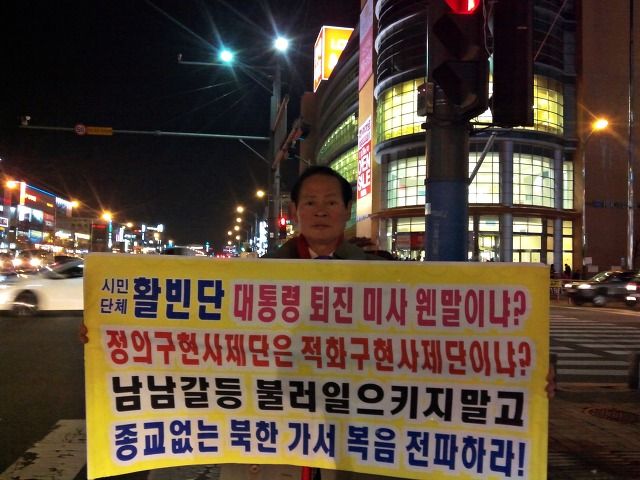 시민
단체 활빈단 대통령 퇴진 미사 웬말이냐?
정의구현사제단은 적화구현사제단이냐?
남남갈등 불러일으키지말고
종교없는 북한 가서 복음 전파하라!
SALE